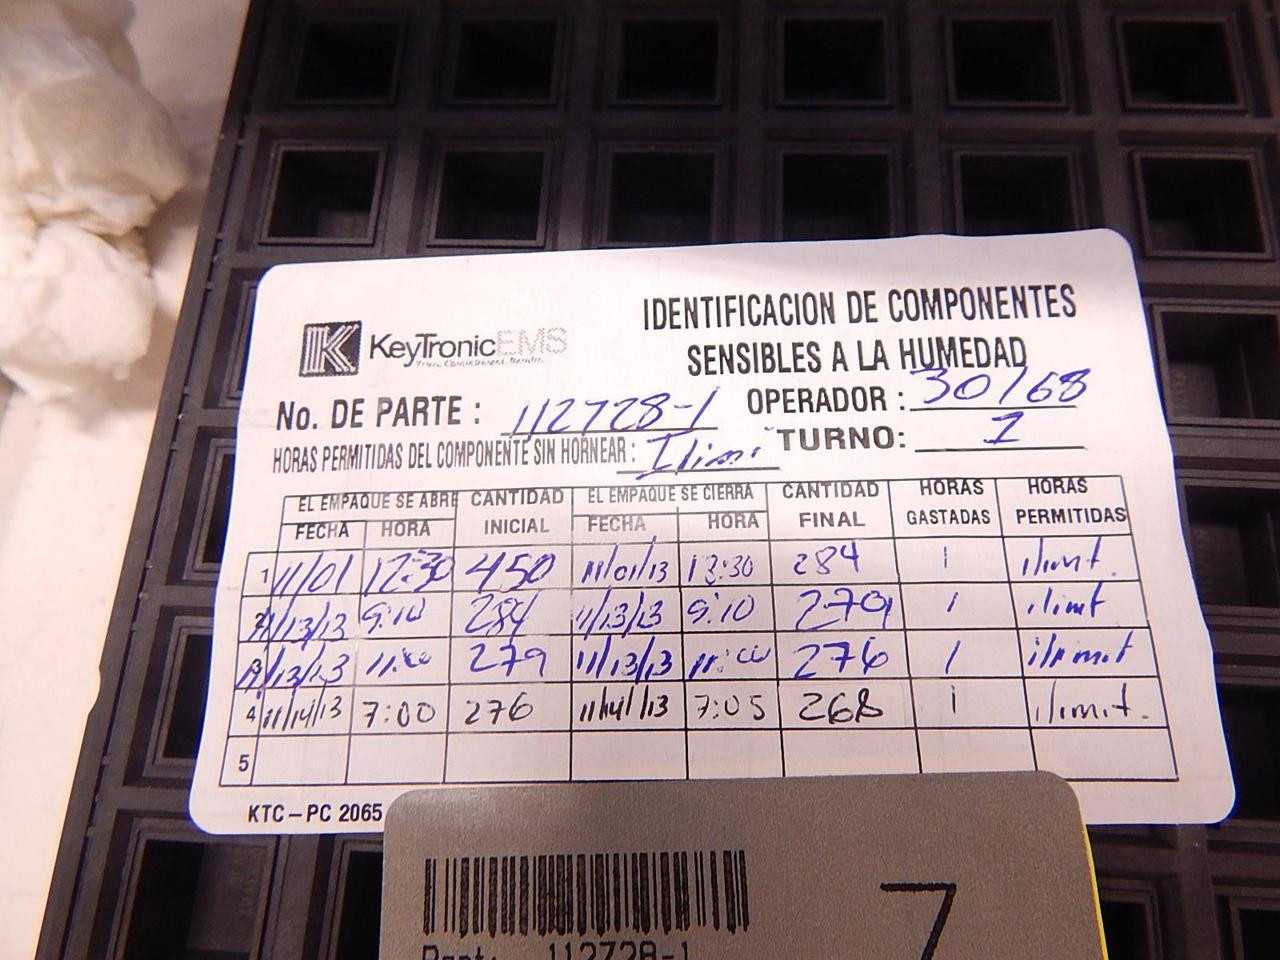 IDENTIFICACION DE COMPONENTES
SENSIBLES A LA HUMEDAD
KeyTronicEMS
No. DE PARTE : 112728-1 OPERADOR : 30168
HORAS PERMITIDAS DEL COMPONENTE SIN HORNEAR : Ilimi. TURNO: 1
EL EMPAQUE SE ABRE CANTIDAD EL EMPAQUE SE CIERRA CANTIDAD HORAS HORAS
FECHA HORA INICIAL FECHA HORA FINAL GASTADAS PERMITIDAS
1 11/01 12:30 450 11/01/13 12:30 284 1 ilimit.
2 11/13/13 9:10 284 11/13/13 9:10 279 1 ilimit
3 11/13/13 11:00 279 11/13/13 11:00 276 1 ilimit
4 11/14/13 7:00 276 11/14/13 7:05 268 1 ilimit.
5
KTC-PC 2065
7
Part: 112728-1